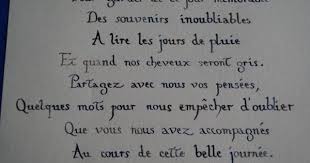 Pour garder de ce jour mémorable
Des souvenirs inoubliables
A lire les jours de pluie
Et quand nos cheveux seront gris.
Partagez avec nous vos pensées,
Quelques mots pour nous empêcher d'oublier
Que vous nous avez accompagnés
Au cours de cette belle journée.